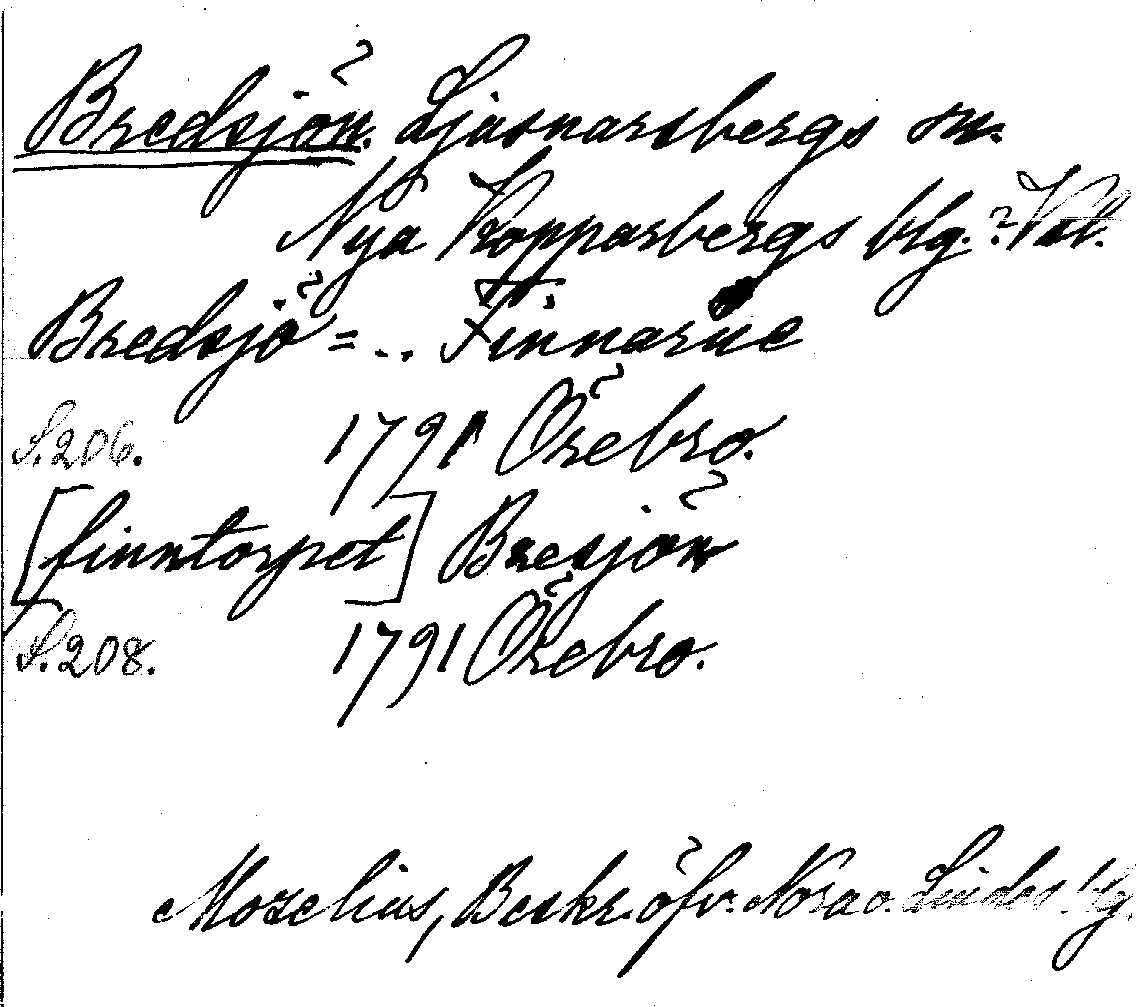 Bredsjön. Ljusnarsbergs sn.
Nya Kopparbergs blg. ? Väst.
Bredsjö = .. Finnarne
S. 206. 1791 Örebro.
[finntorpet] Bresjön
S. 208. 1791 Örebro.
Mozelius, Beskr. öfv. Nora o. Lindes blg.